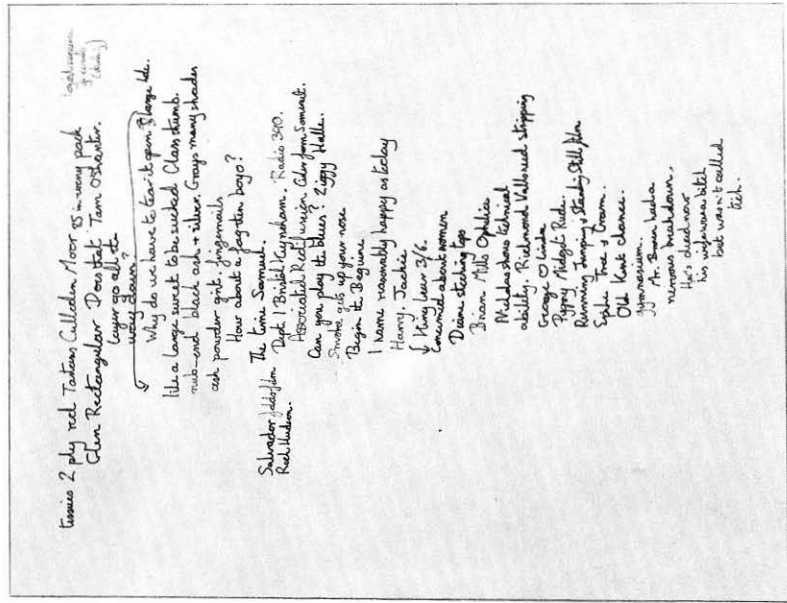 tissues 2 ply red Tartans Culloden Moor 85 in every pack
Glen Rectangular Doo that Tam O'Shanter.
layer go all the
way down?
Why do we have to tear it open
like a large sweet to be sucked Class dumb.
nub-end black ash + silver. Grays many shades
ash powder grit. fingernails
How about a fag then boyo?
The time Samuel.
Salvador
Rock Hudson.
Dept 1 Bristol Keynsham. Radio 390.
Associated Rediffusion Cider from Somerset.
Can you play the blues? Ziggy Halle.
Smoke gets up your nose
Begin the Beguine
I name reasonably happy as today
Harry. Jackie
King Lear 3/6.
Concerned about women
Deane steching tops
Brian Mills Ophelia
Maldau shows technical
ability. Richmond Vallo reed stripping
George Linda
Pygmy Midget Rude.
Running Jumping + Standing Still film
Spike Tree + Crown.
Old Kent chance.
gymnasium.
Mr. Brown had a
nervous breakdown.
He's dead now
his wife was a bitch
but wasn't called
tich.